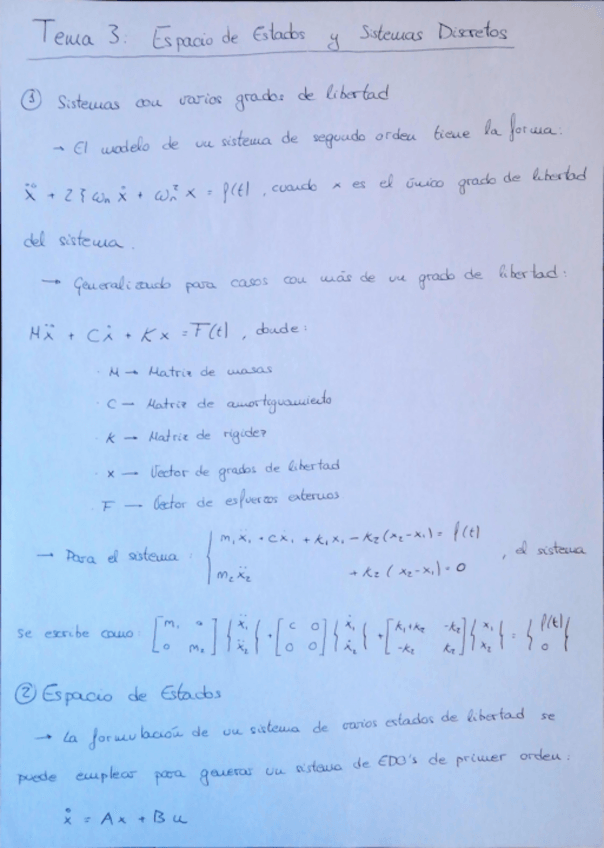 Tema 3: Espacio de Estados y Sistemas Discretos
① Sistemas con varios grados de libertad
→ El modelo de un sistema de segundo orden tiene la forma:
ẍ + 2ξωₙẋ + ωₙ²x = f(t), cuando x es el único grado de libertad
del sistema.
→ Generalizando para casos con más de un grado de libertad:
Mẍ + Cẋ + Kx = F(t), donde:
· M → Matriz de masas
· C → Matriz de amortiguamiento
· K → Matriz de rigidez
· x → Vector de grados de libertad
· F → Vector de esfuerzos externos
→ Para el sistema: { m₁ẍ₁ + cẋ₁ + k₁x₁ - k₂(x₂-x₁) = f(t)
m₂ẍ₂ + k₂(x₂-x₁) = 0 , el sistema
se escribe como: [m₁ 0; 0 m₂] {ẍ₁; ẍ₂} + [c 0; 0 0] {ẋ₁; ẋ₂} + [k₁+k₂ -k₂; -k₂ k₂] {x₁; x₂} = {f(t); 0}
② Espacio de Estados
→ La formulación de un sistema de varios estados de libertad se
puede emplear para generar un sistema de EDO's de primer orden:
ẋ = Ax + Bu